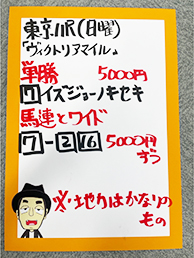 東京11R(日曜)
「ヴィクトリアマイル」
単勝 5000円
7イズジョーノキセキ
馬連とワイド
7-2 16 5000円
ずつ
※地力はかなりの
もの